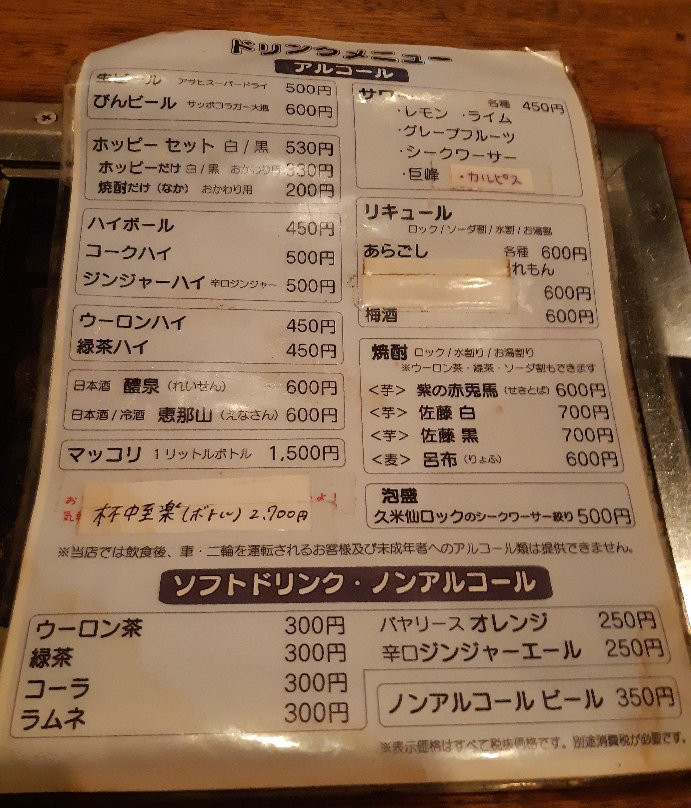 ドリンクメニュー
アルコール
生ビール アサヒスーパードライ 500円
びんビール サッポロラガー大瓶 600円
ホッピー セット 白 / 黒 530円
ホッピーだけ 白 / 黒 おかわり用 330円
焼酎だけ（なか） おかわり用 200円
ハイボール 450円
コークハイ 500円
ジンジャーハイ 辛口ジンジャー 500円
ウーロンハイ 450円
緑茶ハイ 450円
日本酒 醴泉（れいせん） 600円
日本酒 / 冷酒 恵那山（えなさん） 600円
マッコリ 1リットルボトル 1,500円
杯中至楽(ボトル) 2,700円
サワー 各種 450円
・レモン ・ライム
・グレープフルーツ
・シークワーサー
・巨峰 ・カルピス
リキュール
ロック / ソーダ割 / 水割 / お湯割
あらごし 各種 600円
れもん
600円
梅酒 600円
焼酎 ロック / 水割り / お湯割り
※ウーロン茶・緑茶・ソーダ割もできます
<芋> 紫の赤兎馬（せきとば） 600円
<芋> 佐藤 白 700円
<芋> 佐藤 黒 700円
<麦> 呂布（りょふ） 600円
泡盛
久米仙ロックのシークワーサー絞り 500円
※当店では飲食後、車・二輪を運転されるお客様及び未成年者へのアルコール類は提供できません。
ソフトドリンク・ノンアルコール
ウーロン茶 300円
緑茶 300円
コーラ 300円
ラムネ 300円
バヤリース オレンジ 250円
辛口ジンジャーエール 250円
ノンアルコール ビール 350円
※表示価格はすべて税抜価格です。別途消費税が必要です。